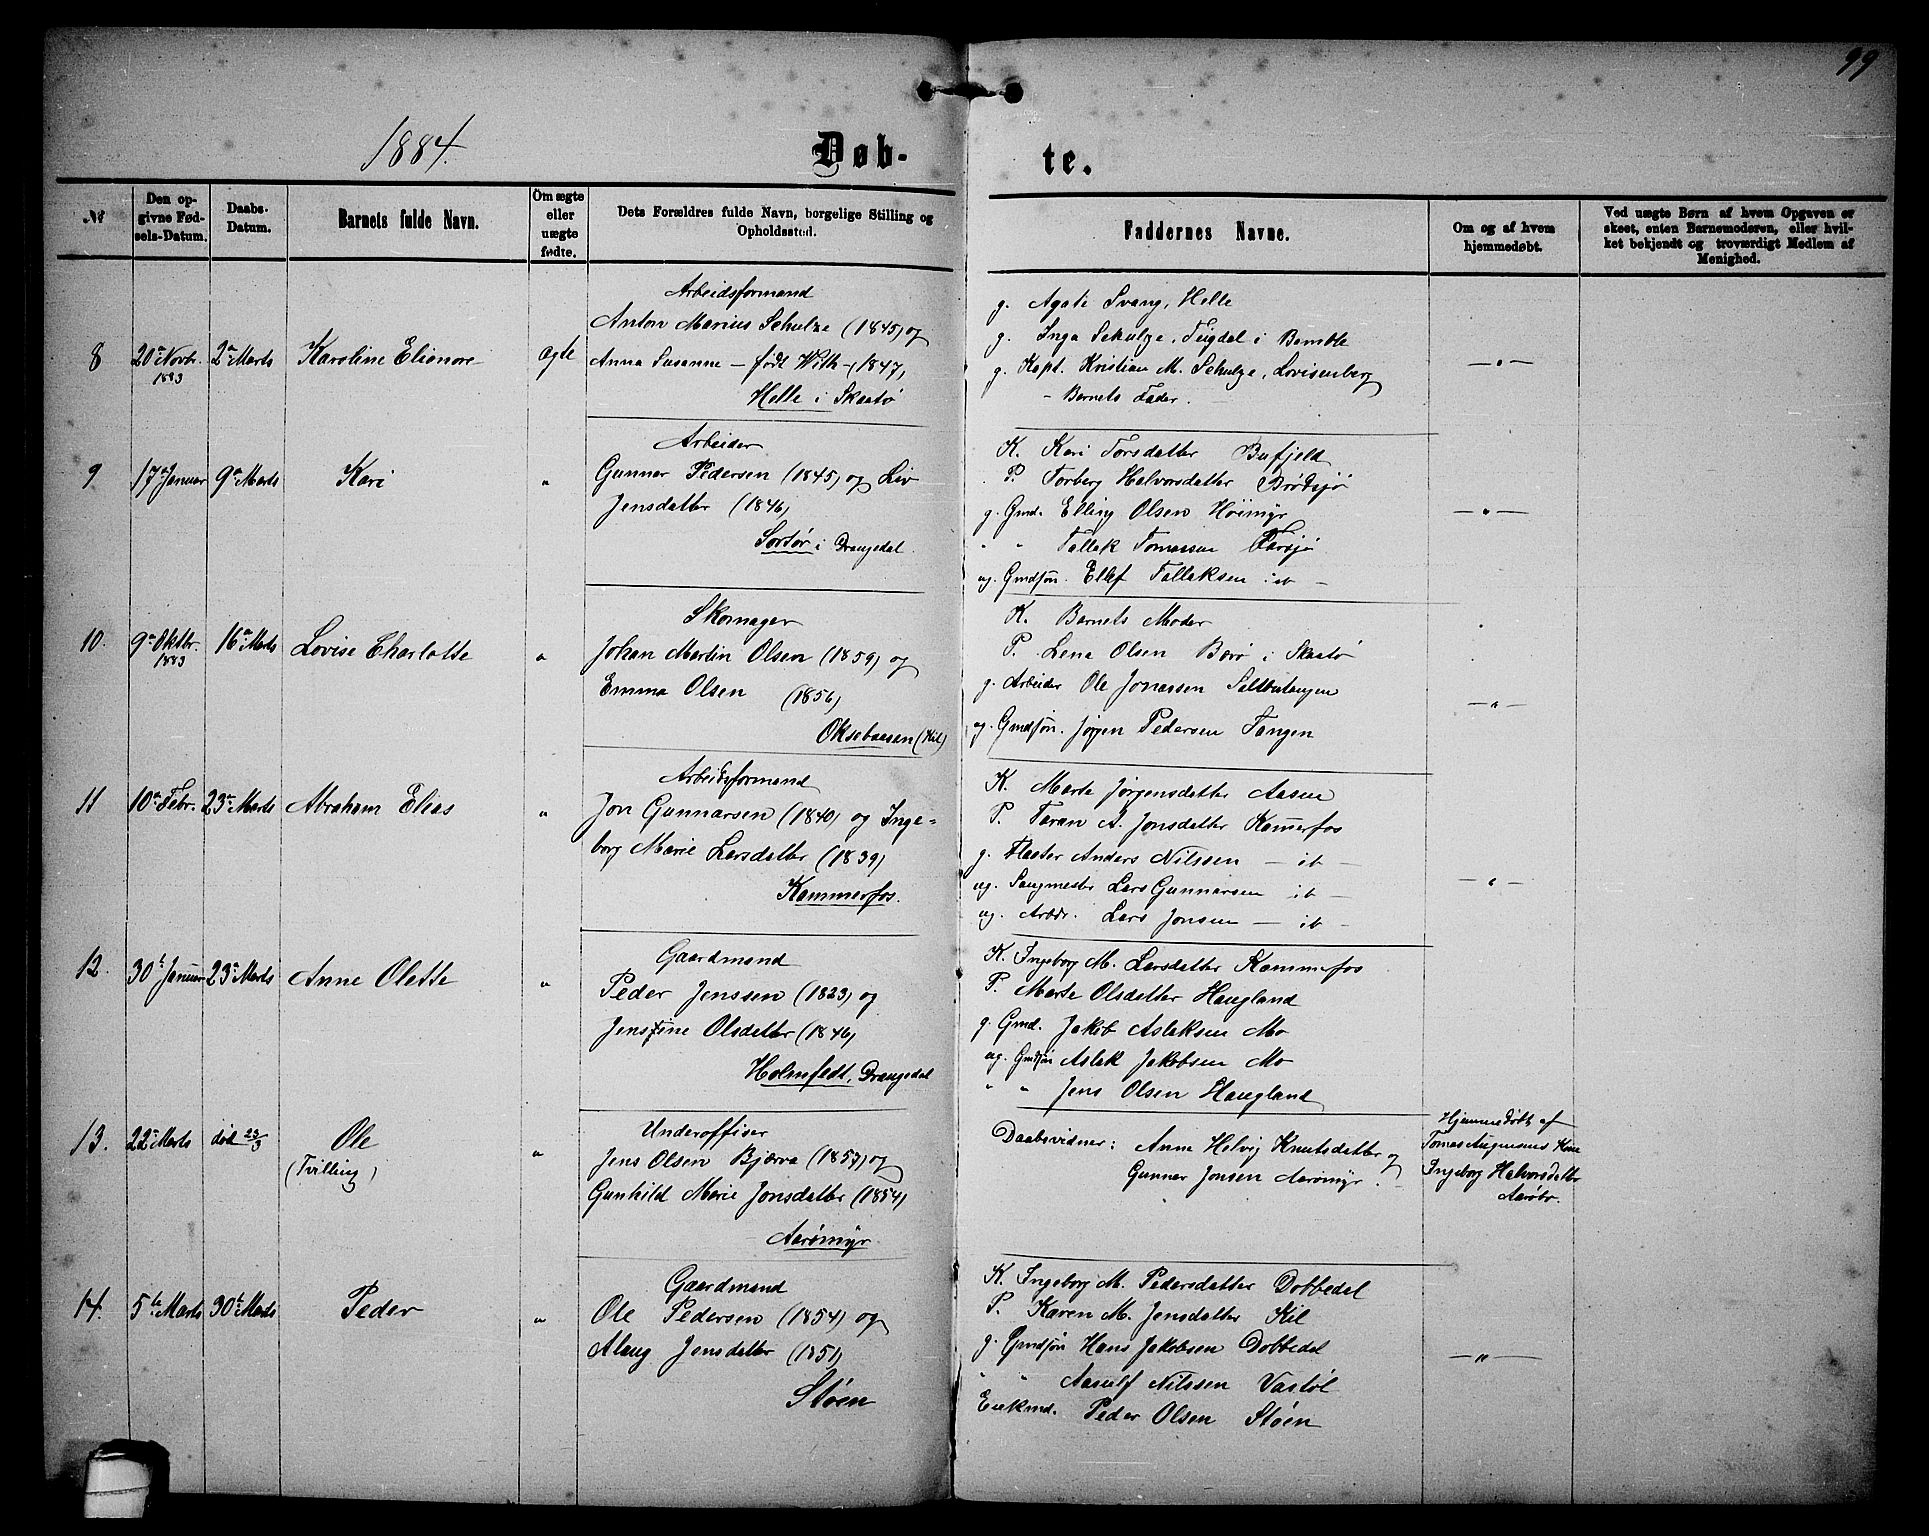 99
1884.
Døb-
te.
№
Den op-
givne Fød-
sels-Datum.
Daabs-
Datum.
Barnets fulde Navn.
Om ægte
eller
uægte
fødte.
Dets Forældres fulde Navn, borgelige Stilling og
Opholdssted.
Faddernes Navne.
Om og af hvem
hjemmedøbt.
Ved uægte Børn af hvem Opgaven er
skeet, enten Barnemoderen, eller hvil-
ket bekjendt og troværdigt Medlem af
Menighed.
8
20de Novbr.
1883
2den Marts
Karoline Elionore
Ægte
Arbeidsformand
Anton Marius Schulze (1845) og
Anna Susanne – født With – (1847)
Helle i Skaatø
g. Agate Svang, Helle
g. Inga Schulze, Tugdal i Bamble
g. Kapt. Kristian M. Schulze, Lovisenberg
– Barnets Fader.
— " —
9
17de Januar
9de Marts
Kari
"
Arbeider
Gunnar Pedersen (1845) og Liv
Jensdatter (1846)
Sortør i Drangedal.
K. Kari Torsdatter Bufjeld
P. Torberg Halvorsdatter Brødsjø
g. Gmd. Elling Olsen Höimyr
" " Tallak Tomassen Farsjø
ug. Gmdsøn. Ellef Tallaksen it –
— " —
10.
9de Oktbr.
1883
16de Marts
Lovise Charlotte
"
Skomager
Johan Martin Olsen (1859) og
Emma Olsen (1856)
Oksebaasen (Kil)
K. Barnets Moder
P. Lena Olsen Barø i Skaatø
g. Arbeider Ole Jonassen Saltbutangen
ug. Gmdsøn. Jørgen Pedersen Tangen
— " —
11
10de Febr.
23de Marts
Abraham Elias
"
Arbeidsformand
Jon Gunnarsen (1840) og Inge-
borg Marie Larsdatter (1839)
Kammerfos.
K. Marte Jørgensdatter Aasen
P. Taran A. Jonsdatter Kam̄erfos
g. Flaater Anders Nilssen — it —
ug. Saugmester Lars Gunnarsen it –
ug. Arbdr. Lars Jonsen — it –
— " —
12.
30te Januar
23de Marts
Anne Olette
"
Gaardmand
Peder Jenssen (1823) og
Jenstine Olsdatter (1846)
Holmfedt, Drangedal
K. Ingeborg M. Larsdatter Kammerfos
P. Marte Olsdatter Haugland
g. Gmd. Jakob Aslaksen Mo
ug. Gmdsøn Aslak Jakobsen Mo
" " Jens Olsen Haugland
13.
22de Marts
død 23/3
Ole
(Tvilling)
"
Underoffiser
Jens Olsen Bjærva (1857) og
Gunhild Marie Jonsdatter (1854)
Aarømyr
Daabsvidner: Anne Helvig Knutsdatter og
Gunnar Jonsen Aarømyr.
Hjemmedøbt af
Tomas Augunsens Kone
Ingeborg Halvorsdatter
Aarøbr.
14.
5te Marts
30te Marts
Peder
"
Gaardmand
Ole Pedersen (1854) og
Alaug Jensdatter (1851)
Støen
K. Ingeborg M. Pedersdatter Dobbedal
P. Karen M. Jensdatter Kil
g. Gmdsøn Hans Jakobsen Dobbedal
" " Aasulf Nilssen Vastøl
Enkmd. Peder Olsen Støen
— " —